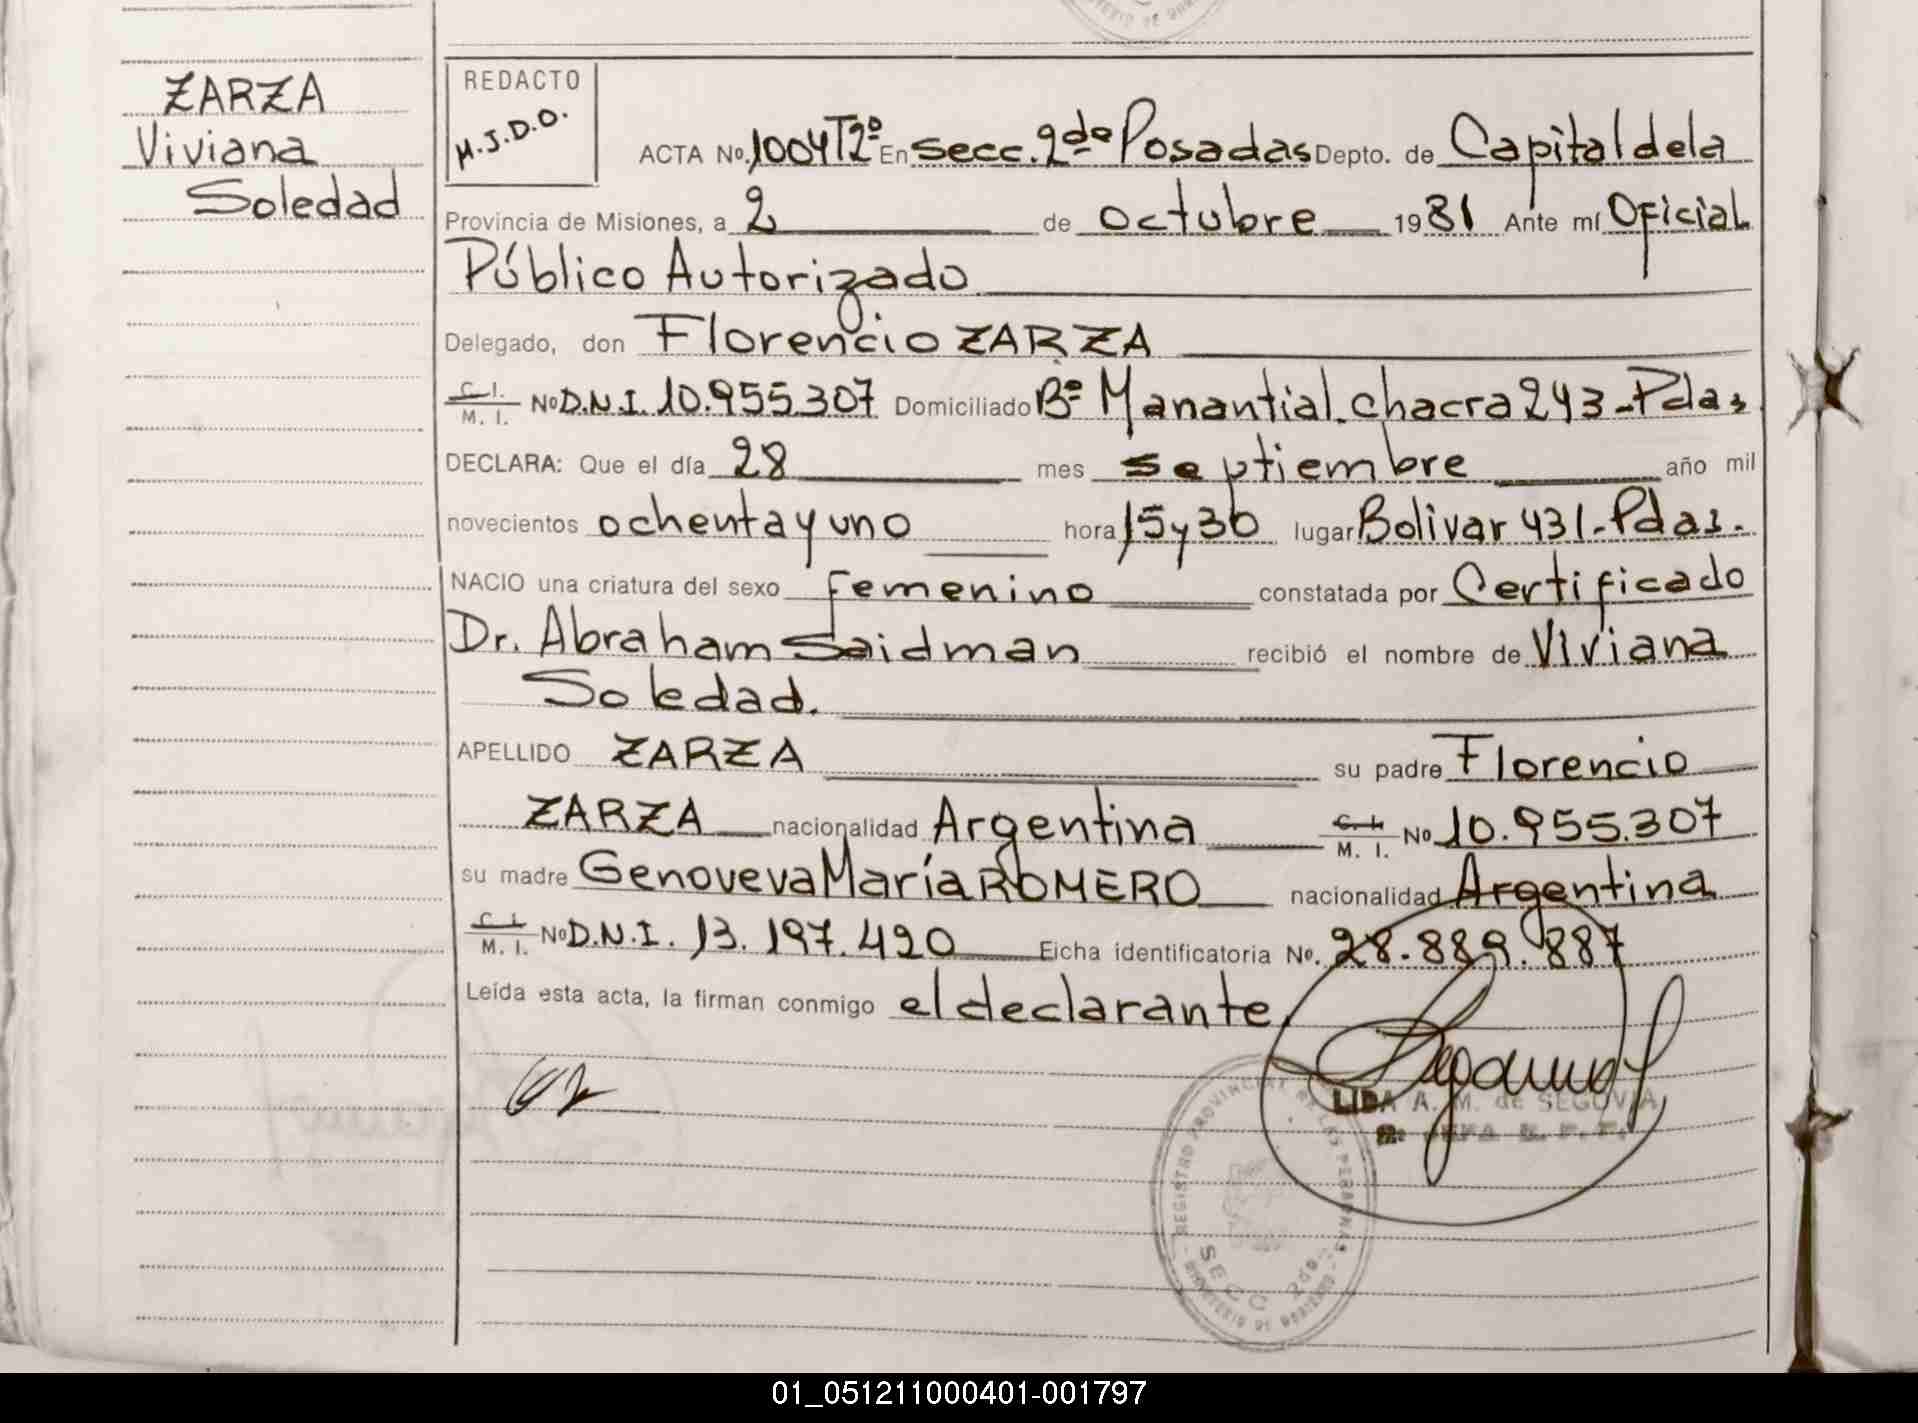 ZARZA
Viviana
Soledad
REDACTO
M.J.D.O.
ACTA No. 1004T2º En secc. 2da Posadas Depto. de Capital de la
Provincia de Misiones, a 2 de octubre 1981 Ante mí Oficial
Público Autorizado
Delegado, don Florencio ZARZA
C. I. / M. I. No D.N.I. 10.955.307 Domiciliado Bº Manantial. chacra 243 - Pdas
DECLARA: Que el día 28 mes septiembre año mil
novecientos ochenta y uno hora 15 y 30 lugar Bolivar 431 - Pdas.-
NACIO una criatura del sexo femenino constatada por Certificado
Dr. Abraham Saidman recibió el nombre de Viviana
Soledad.
APELLIDO ZARZA su padre Florencio
ZARZA nacionalidad Argentina C. I. / M. I. No 10.955.307
su madre Genoveva María ROMERO nacionalidad Argentina
C. I. / M. I. No D.N.I. 13.197.420 Ficha identificatoria No. 28.889.887
Leída esta acta, la firman conmigo el declarante.
LIDA A. M. de SEGOVIA
REGISTRO PROVINCIAL DE LAS PERSONAS
SECC 2da
MINISTERIO DE GOBIERNO
01_051211000401-001797